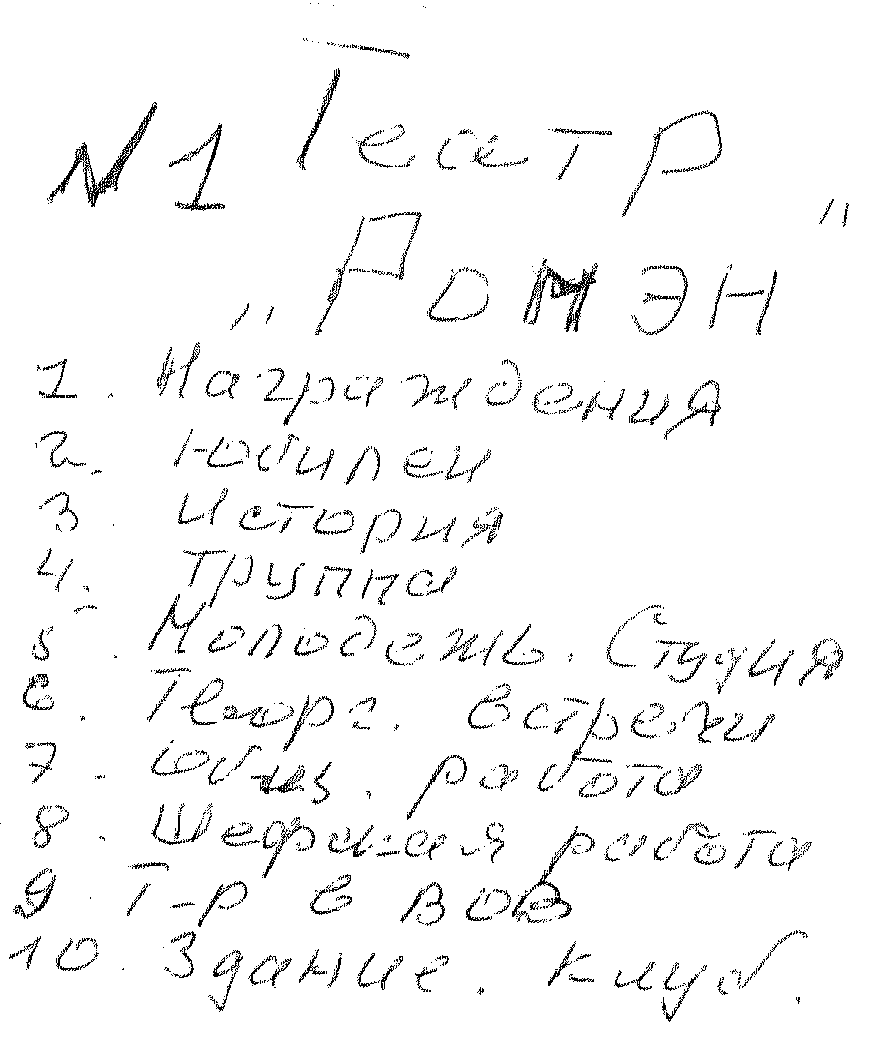 N1 Театр
„Ромэн"
1. Награждения
2. Юбилеи
3. История
4. Труппа
5. Молодежь. Студия
6. Творч. встречи
7. Общ. работа
8. Шефская работа
9. Т-р в ВОВ
10. Здание. Клуб.